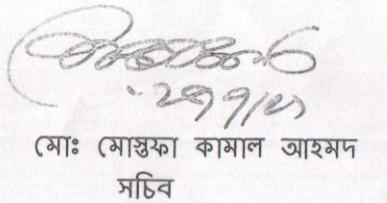 মোঃ মোস্তফা কামাল আহমদ
সচিব